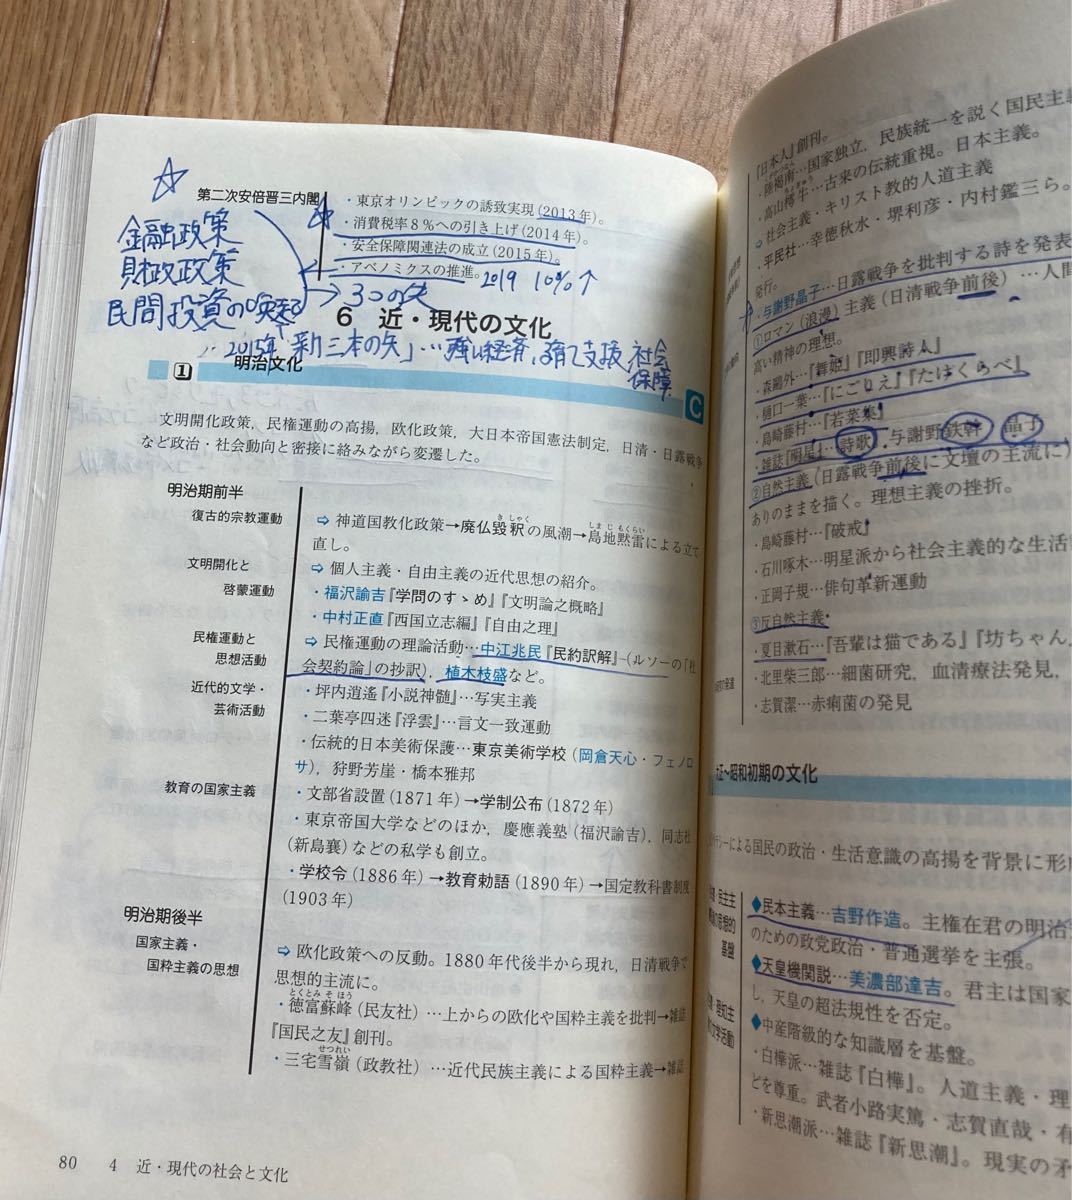 第二次安倍晋三内閣
・東京オリンピックの誘致実現(2013年)。
・消費税率8%への引き上げ(2014年)。
・安全保障関連法の成立(2015年)。
・アベノミクスの推進。2019 10%↑
金融政策
財政政策
民間投資の喚起
→3つの矢
6 近・現代の文化
2015年「新三本の矢」…強い経済、子育て支援、社会
保障
1 明治文化
C
文明開化政策,民権運動の高揚,欧化政策,大日本帝国憲法制定,日清・日露戦争
など政治・社会動向と密接に絡みながら変遷した。
明治期前半
復古的宗教運動
⇨ 神道国教化政策→廃仏毀釈の風潮→島地黙雷による立て
きしゃく
しまじもくらい
直し。
文明開化と
啓蒙運動
⇨ 個人主義・自由主義の近代思想の紹介。
・福沢諭吉『学問のすゝめ』『文明論之概略』
・中村正直『西国立志編』『自由之理』
民権運動と
思想活動
⇨ 民権運動の理論活動…中江兆民『民約訳解』(ルソーの「社
会契約論」の抄訳),植木枝盛など。
近代的文学・
芸術活動
・坪内逍遙『小説神髄』…写実主義
・二葉亭四迷『浮雲』…言文一致運動
・伝統的日本美術保護…東京美術学校(岡倉天心・フェノロ
サ),狩野芳崖・橋本雅邦
教育の国家主義
・文部省設置(1871年)→学制公布(1872年)
・東京帝国大学などのほか,慶應義塾(福沢諭吉),同志社
(新島襄)などの私学も創立。
・学校令(1886年)→教育勅語(1890年)→国定教科書制度
(1903年)
明治期後半
国家主義・
国粋主義の思想
⇨ 欧化政策への反動。1880年代後半から現れ,日清戦争で
思想的主流に。
とくとみそほう
・徳富蘇峰(民友社)…上からの欧化や国粋主義を批判→雑誌
『国民之友』創刊。
せつれい
・三宅雪嶺(政教社)…近代民族主義による国粋主義→雑誌
80 4 近・現代の社会と文化
『日本人』創刊。
・陸羯南…国家独立,民族統一を説く国民主義
・高山樗牛…古来の伝統重視。日本主義。
⇨ 社会主義・キリスト教的人道主義
・平民社…幸徳秋水・堺利彦・内村鑑三ら。
発行。
・与謝野晶子…日露戦争を批判する詩を発表
①ロマン(浪漫)主義(日清戦争前後)…人間
高い精神の理想。
・森鷗外…『舞姫』『即興詩人』
・樋口一葉…『にごりえ』『たけくらべ』
・島崎藤村…『若菜集』
・雑誌『明星』…詩歌,与謝野鉄幹・晶子
②自然主義(日露戦争前後に文壇の主流に)
ありのままを描く。理想主義の挫折。
・島崎藤村…『破戒』
・石川啄木…明星派から社会主義的な生活
・正岡子規…俳句革新運動
③反自然主義
・夏目漱石…『吾輩は猫である』『坊ちゃん
・北里柴三郎…細菌研究,血清療法発見,
・志賀潔…赤痢菌の発見
大正〜昭和初期の文化
ラシーによる国民の政治・生活意識の高揚を背景に形
基盤
◆民本主義…吉野作造。主権在君の明治
のための政党政治・普通選挙を主張。
◆天皇機関説…美濃部達吉。君主は国家
し,天皇の超法規性を否定。
◆中産階級的な知識層を基盤。
・白樺派…雑誌『白樺』。人道主義・理
どを尊重。武者小路実篤・志賀直哉・有
・新思潮派…雑誌『新思潮』。現実の矛